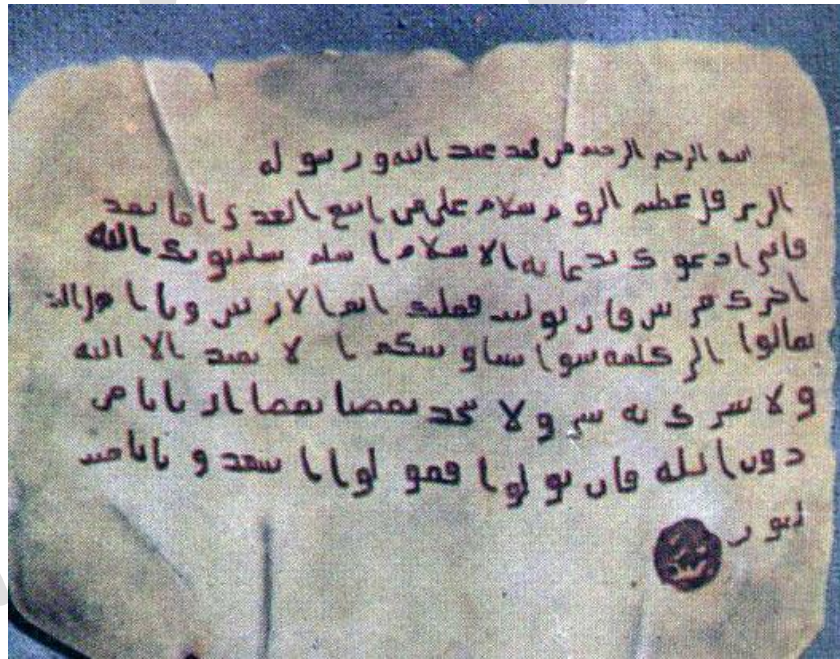 الله الرحمن الرحيم من محمد عبد الله و رسو له
الى هرقل عظيم الروم سلام على من اتبع الهدى اما بعد
فانى ادعوك بدعاية الاسلام اسلم تسلم يوتك الله
اجرك مرتين فان توليت فعليك اثم الاريسين ويا اهل
تعالوا الى كلمة سوا بيننا وبينكم الا نعبد الا الله
ولا نشرك به شيا ولا يتخذ بعضنا بعضا اربابا من
دون الله فان تولوا فقولوا اشهدوا بانا مسلـ
مون